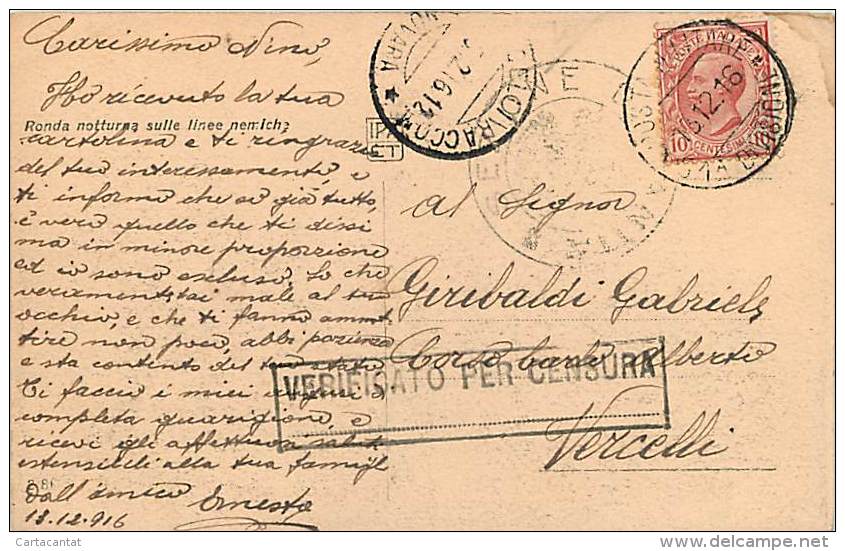 Carissimo Nino,
Ho ricevuto la tua
Ronda notturna sulle linee nemiche
cartolina e ti ringrazio
del tuo interessamento, e
ti informo che so già tutto,
è vero quello che ti dissi
ma in minore proporzione
ed io sono escluso. So che
veramente stai male al tuo
occhio, e che ti fanno ammat
tire non poco, abbi pazienza
e sta contento del tuo stato
Ti faccio i miei auguri e
completa guarigione, e
ricevi gli affettuosi saluti
estensibili alla tua famigl
Dall'amico Ernesto
13.12.916
POSTE ITALIANE
10 CENTESIMI 10
POSTA MILITARE
DIVISIONE
12.16
NOVARA
16.12
VERIFICATO PER CENSURA
Al Signor
Giribaldi Gabriele
Corso Carlo Alberto
Vercelli
Cartacantat
www.delcampe.net